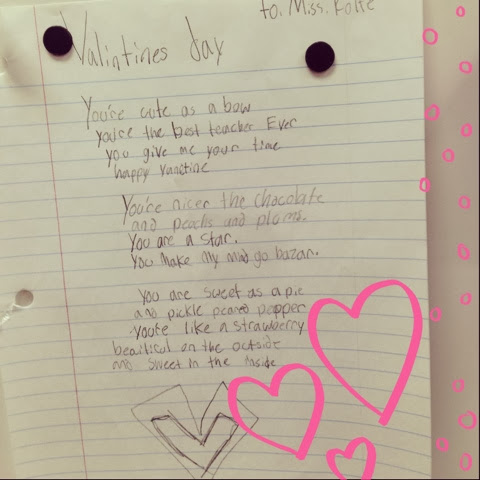 to. Miss. Folte
Valintines day
You're cute as a bow
you're the best teacher Ever
you give me your time
happy vanctine
You're nicer the chocolate
and peachs and ploms.
You are a star.
You Make My mind go bazar.
You are sweet as a pie
and pickle peared pepper
you're like a strawberry
beautiful on the outside
and sweet in the inside